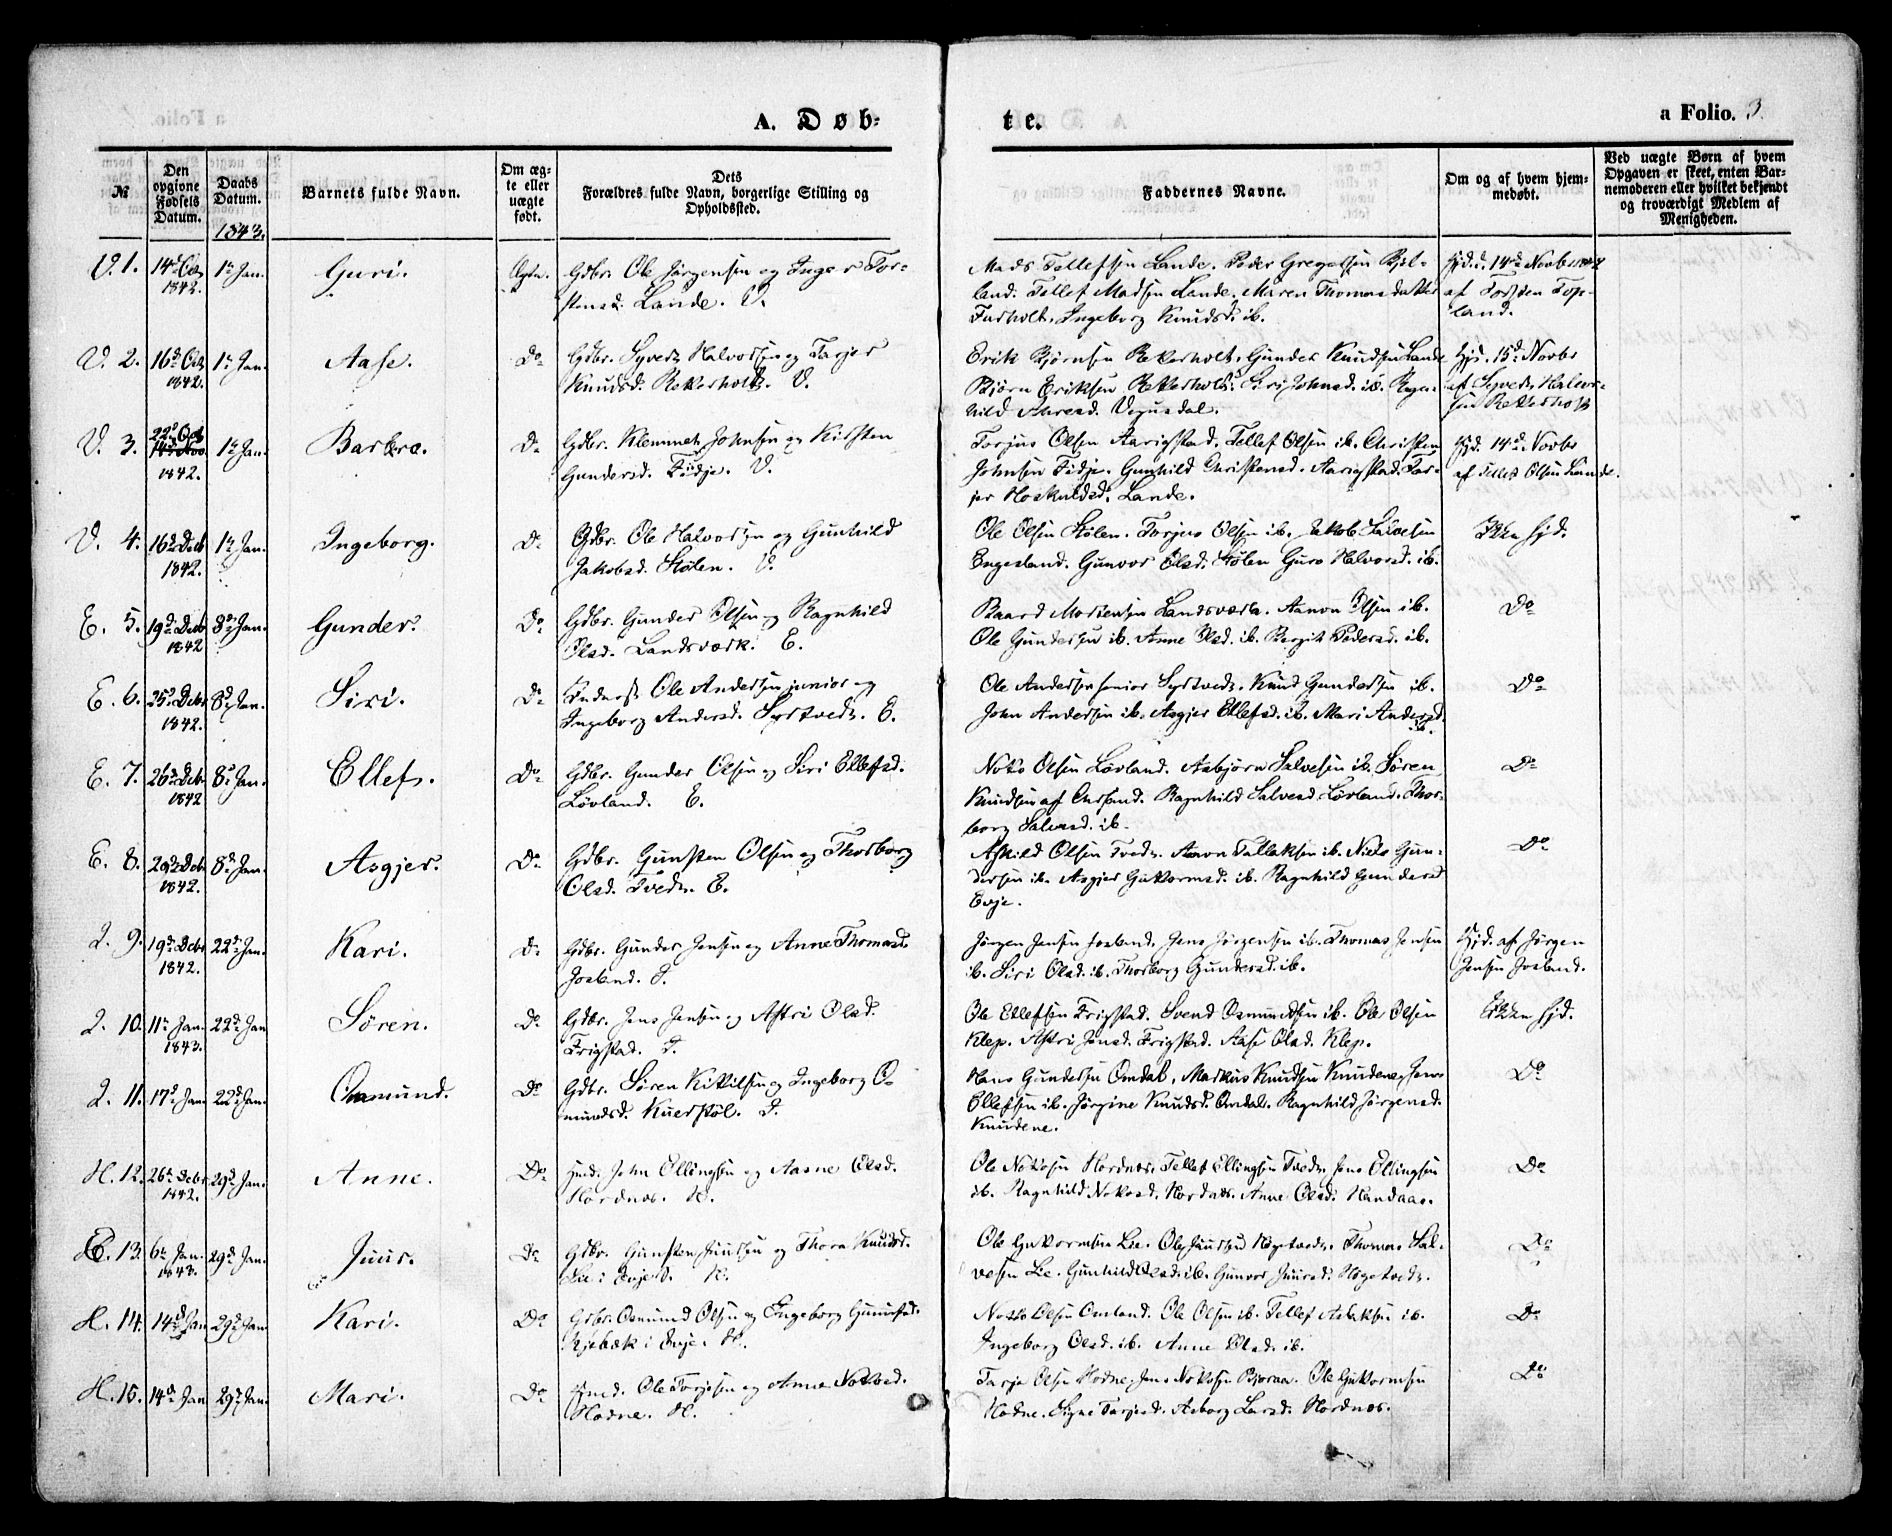 A. Døb-
te.
a Folio. 3.
№
Den opgivne Fødsels Datum.
Daabs Datum.
1843.
Barnets fulde Navn.
Om ægte eller uægte født.
Dets
Forældres fulde Navn, borgerlige Stilling og
Opholdssted.
Faddernes Navne.
Om og af hvem hjemmedøbt.
Ved uægte Børn af hvem
Opgaven er skeet, enten Barnemoderen eller hvilket bekjendt
og troværdigt Medlem af
Menigheden.
V. 1. 14de Oct 1842. 1ste Jan. Guri. Ægte.
Gdbr. Ole Jørgensen og Inger Tor-
stensd. Lande. V.
Mads Tellefsen Lande. Peder Gregersen
land. Tellef Madsen Lande. Maren Thomasdatter
Ingeborg Knudsd. ib.
Hjd. d. 14de Novbr 1842
af Torsten Top-
land.
V. 2. 16de Oct 1842. 1ste Jan. Aase. Do
Gdbr. Syvert Halvorsen og Tarjer
Knudsd. Retterholt. V.
Erik Bjørnsen Retterholt. Gunder Knudsen Lande
Bjørn Eriksen Retterholt. Siri Johnsd. ib. Ragn-
hild Vegusdal.
Hjd. 15de Novbr
af Syvert Halvor-
sen Retterholt
V. 3. 22de Oct 1842. 1ste Jan. Barbra. Do
Gdbr. Klemmet Johnsen og Kirsten
Gundersd. Fidje. V.
Torjus Olsen Aarigstad. Tellef Olsen ib. Christen
Johnsen Fidje. Gunhild Christensd. Aarigstad. Tar-
jer Hoskuldsd. Lande.
Hjd. 14de Novbr
af Tellef Olsen Lande.
V. 4. 16de Decb 1842. 1ste Jan. Ingeborg. Do
Gdbr. Ole Halvorsen og Gunhild
Jakobsd. Stølen. V.
Ole Olsen Stølen. Torjus Olsen ib. Jakob Salvesen
Engesland. Gunvor Olsd. Stølen Guro Halvorsd. ib.
Ikke hjd.
E. 5. 19de Decb 1842 8de Jan. Gunder. Do
Gdbr. Gunder Olsen og Ragnhild
Olsd. Landsværk. E.
Baard Mortensen Landsværk. Aanon Olsen ib.
Ole Gundersen ib. Anne Olsd. ib. Birgit Pedersd. ib.
Do
E. 6. 25de Decbr 1842. 8de Jan. Siri. Do
Ole Andersen junior og
Ingeborg Andersd. Syrtveit. E.
Ole Andersen senior Syrtveit. Knud Gundersen ib.
John Andersen ib. Asgjer Ellefsd. ib. Mari Andersd.
ib.
Do
E. 7. 26de Decbr 1842 8de Jan. Ellef. Do
Gdbr. Gunder Olsen og Siri Ellefsd.
Løvland. E.
Notto Olsen Løvland. Asbjørn Salvesen ib. Søren
Knudsen af Ragnhild Salvesd. Løvland. Thor-
borg Salvesd. ib.
Do
E. 8. 29de Decbr. 1842. 8de Jan. Asgjer. Do
Gdbr. Gunsten Olsen og Thorborg
Olsd. Tveit. E.
Askild Olsen Tveit. Aanon Tallaksen ib. Niels Gun-
dersen ib. Asgjer Guttormsd. ib. Ragnhild Gundersd
Evje.
Do
I. 9. 19de Decbr 1842. 22de Jan. Kari. Do
Gdbr. Gunder Jensen og Anne Thomasd.
Josland. I.
Jørgen Jensen Josland. Jens Jørgensen ib. Thomas Jensen
ib. Siri Olsd. ib. Thorborg Gundersd. ib.
Hjd. af Jørgen
Jensen Josland.
I. 10. 11te Jan. 1843. 22de Jan Søren. Do
Gdbr. Jens Jensen og Astri Olsd.
Frigstad. I.
Ole Ellefsen Frigstad. Svend Osmundsen ib. Ole Olsen
Klep. Astri Jensd. Frigstad. Aase Olsd. Klep.
Ikke hjd.
I. 11. 17de Jan. 22de Jan. Osmund. Do
Gdbr. Søren Kittilsen og Ingeborg O-
mundsd. I.
Hans Gundersen Omdal. Markus Knudsen Knudene. Jens
Ellefsen ib. Jørgine Knudsd. Omdal. Ragnhild Jørgensd.
Knudene.
Do
H. 12. 26de Decbr 1842. 29de Jan. Anne. Do
Hmd. John Ellingsen og Aasne Olsd.
Hordnes. H.
Ole Nottosen Hordnes. Tellef Ellingsen Tveit. Jens Ellingsen
ib. Ragnhild Nottosd. Hordnes. Anne Olsd. Handaas.
Do
H. 13. 6te Jan. 1843. 29de Jan. Juur. Do
Gdbr. Gunsten Juursen og Thora Knudsd.
Lie i H.
Ole Guttormsen Lie. Ole Juursen Høgetveit. Thomas Sal-
vesen Lie. Gunhild Olsd. ib. Gunvor Juursd. Høgetveit.
Do
H. 14. 14de Jan 29de Jan Kari. Do
Gdbr. Osmund Olsen og Ingeborg
Kjebæk i Evje. H.
Notto Olsen Omland. Ole Olsen ib. Tellef Aslaksen ib.
Ingeborg Olsd. ib. Anne Olsd. ib.
Do
H. 15. 14de Jan 29de Jan. Mari. Do
Hmd. Ole Torjesen og Anne Nottosd.
Hodne. H.
Tarje Olsen Hodne. Jens Nottosen Bjoraa. Ole Guttormsen
Hodne. Signe Tarjesd. Aaborg Larsd. Hordnes.
Do